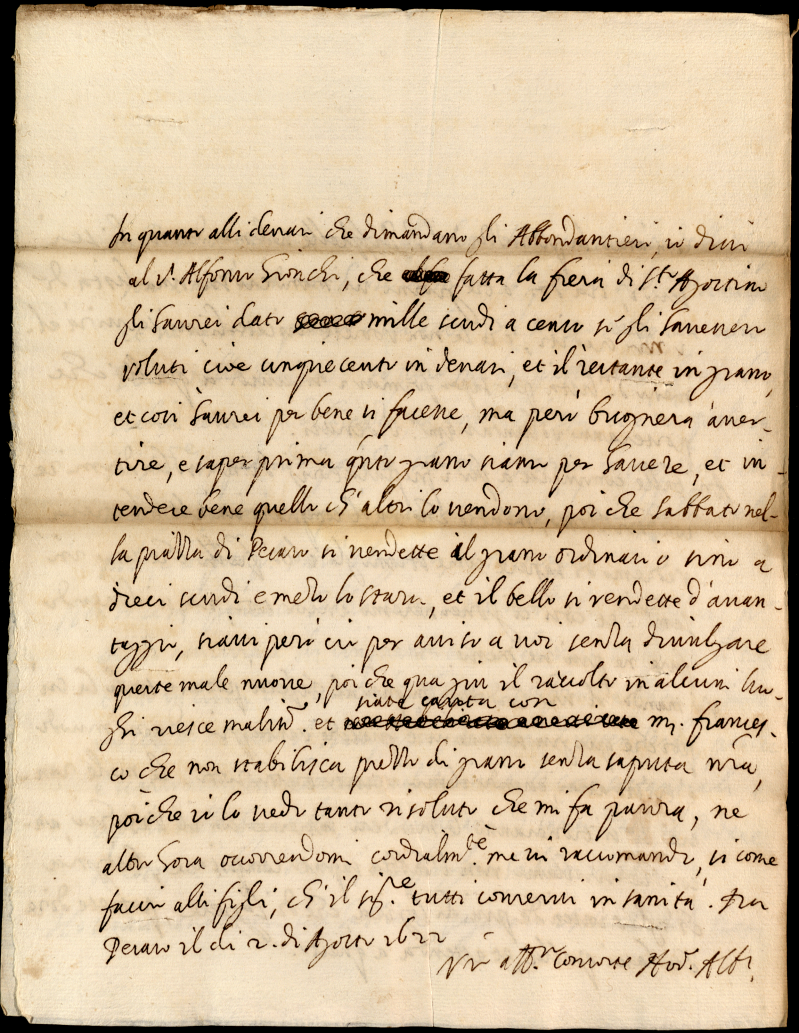 In quanto alli denari che dimandano gli Abbondantieri, io dissi
al S.r Alfonso Gionchi, che fatta la fiera di S.to Agostino
gli haurei dato mille scudi a censo se gli havessero
voluti cioè cinquecento in denari, et il restante in grano,
et così haurei per bene si facesse, ma però bisogniera aver-
tire, e saper prima q.nto grano siamo per havere, et in-
tendere bene quello ch'altri lo vendono, poi che sabbato nel-
la piazza di Pesaro si vendette il grano ordinario sino a
dieci scudi e mezo lo staro, et il bello si vendette d'avan-
taggio, siavi però ciò per aviso a voi senza divulgare
queste male nuove, poi che qua giu il racolto in alcuni luo-
ghi riesce malis.mo et siate cauta con m.r frances-
co che non stabilisca prezzo di grano senza saputa v̄ra,
poiche io lo vedo tanto risoluto che mi fa paura, ne
altro hora occorrendomi cordialm.te me vi raccomando, si come
faccio alli figli, ch'il sig.re tutti conservi in sanità. Da
Pesaro il di 2. di Agosto 1622
V.ro aff.mo Consorte Hod. Alb.i